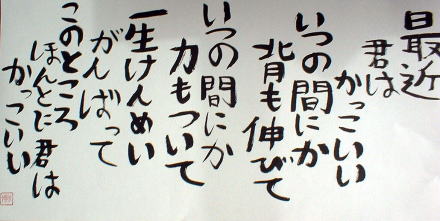 最近
君は
かっこいい
いつの間にか
背も伸びて
いつの間にか
力もついて
一生けんめい
がんばって
このところ
ほんとに君は
かっこいい